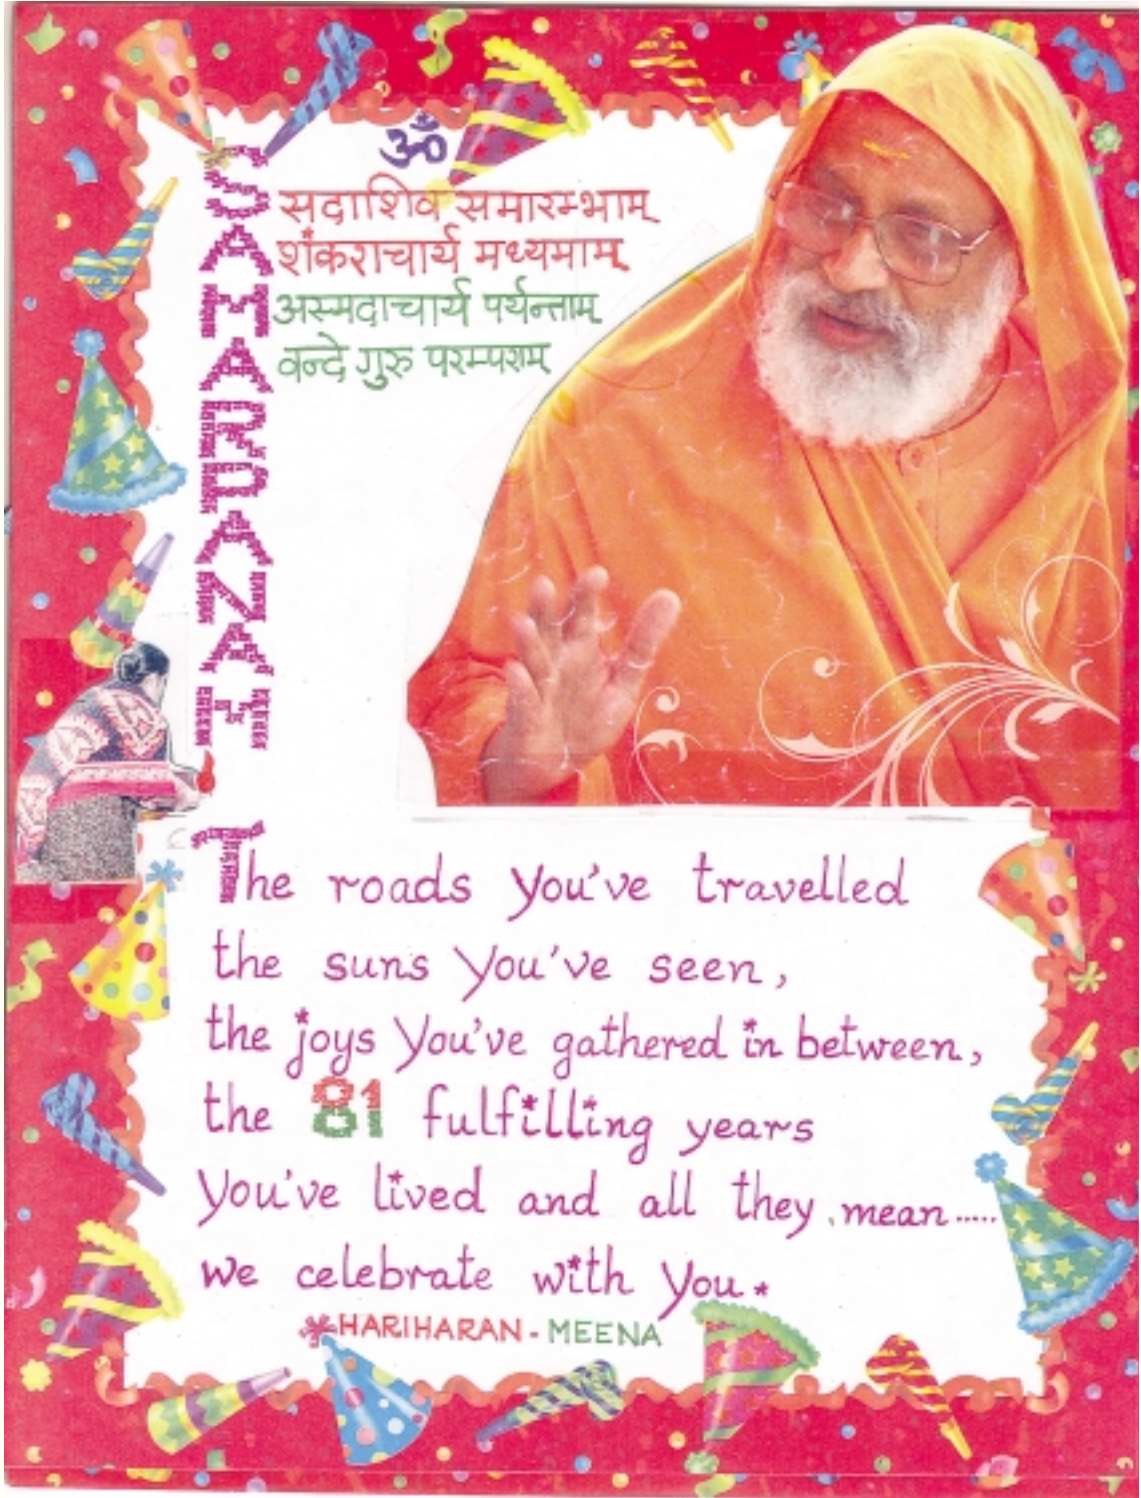 ॐ
SAMARPANAM
सदाशिव समारम्भाम्
शंकराचार्य मध्यमाम्
अस्मदाचार्य पर्यन्ताम्
वन्दे गुरु परम्पराम्
The roads you've travelled
the suns you've seen,
the joys you've gathered in between,
the 81 fulfilling years
you've lived and all they mean.....
we celebrate with you.
HARIHARAN - MEENA